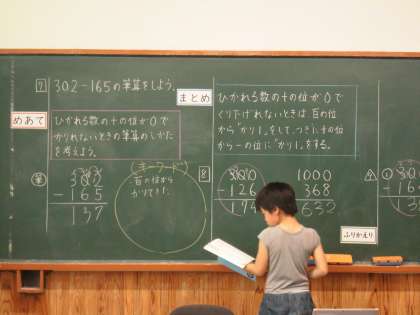 7 302-165の筆算をしよう。
めあて
ひかれる数の十の位が0で
かりれないときの筆算のしかた
を考えよう。
まとめ
ひかれる数の十の位が0で
くり下げれないときは、百の位
から"かり1"をして、つぎに十の位
から一の位に"かり1"をする。
キーワード
百の位から
かりてきた。
302
-165
137
8
-126
1000
368
632
ふりかえり
①